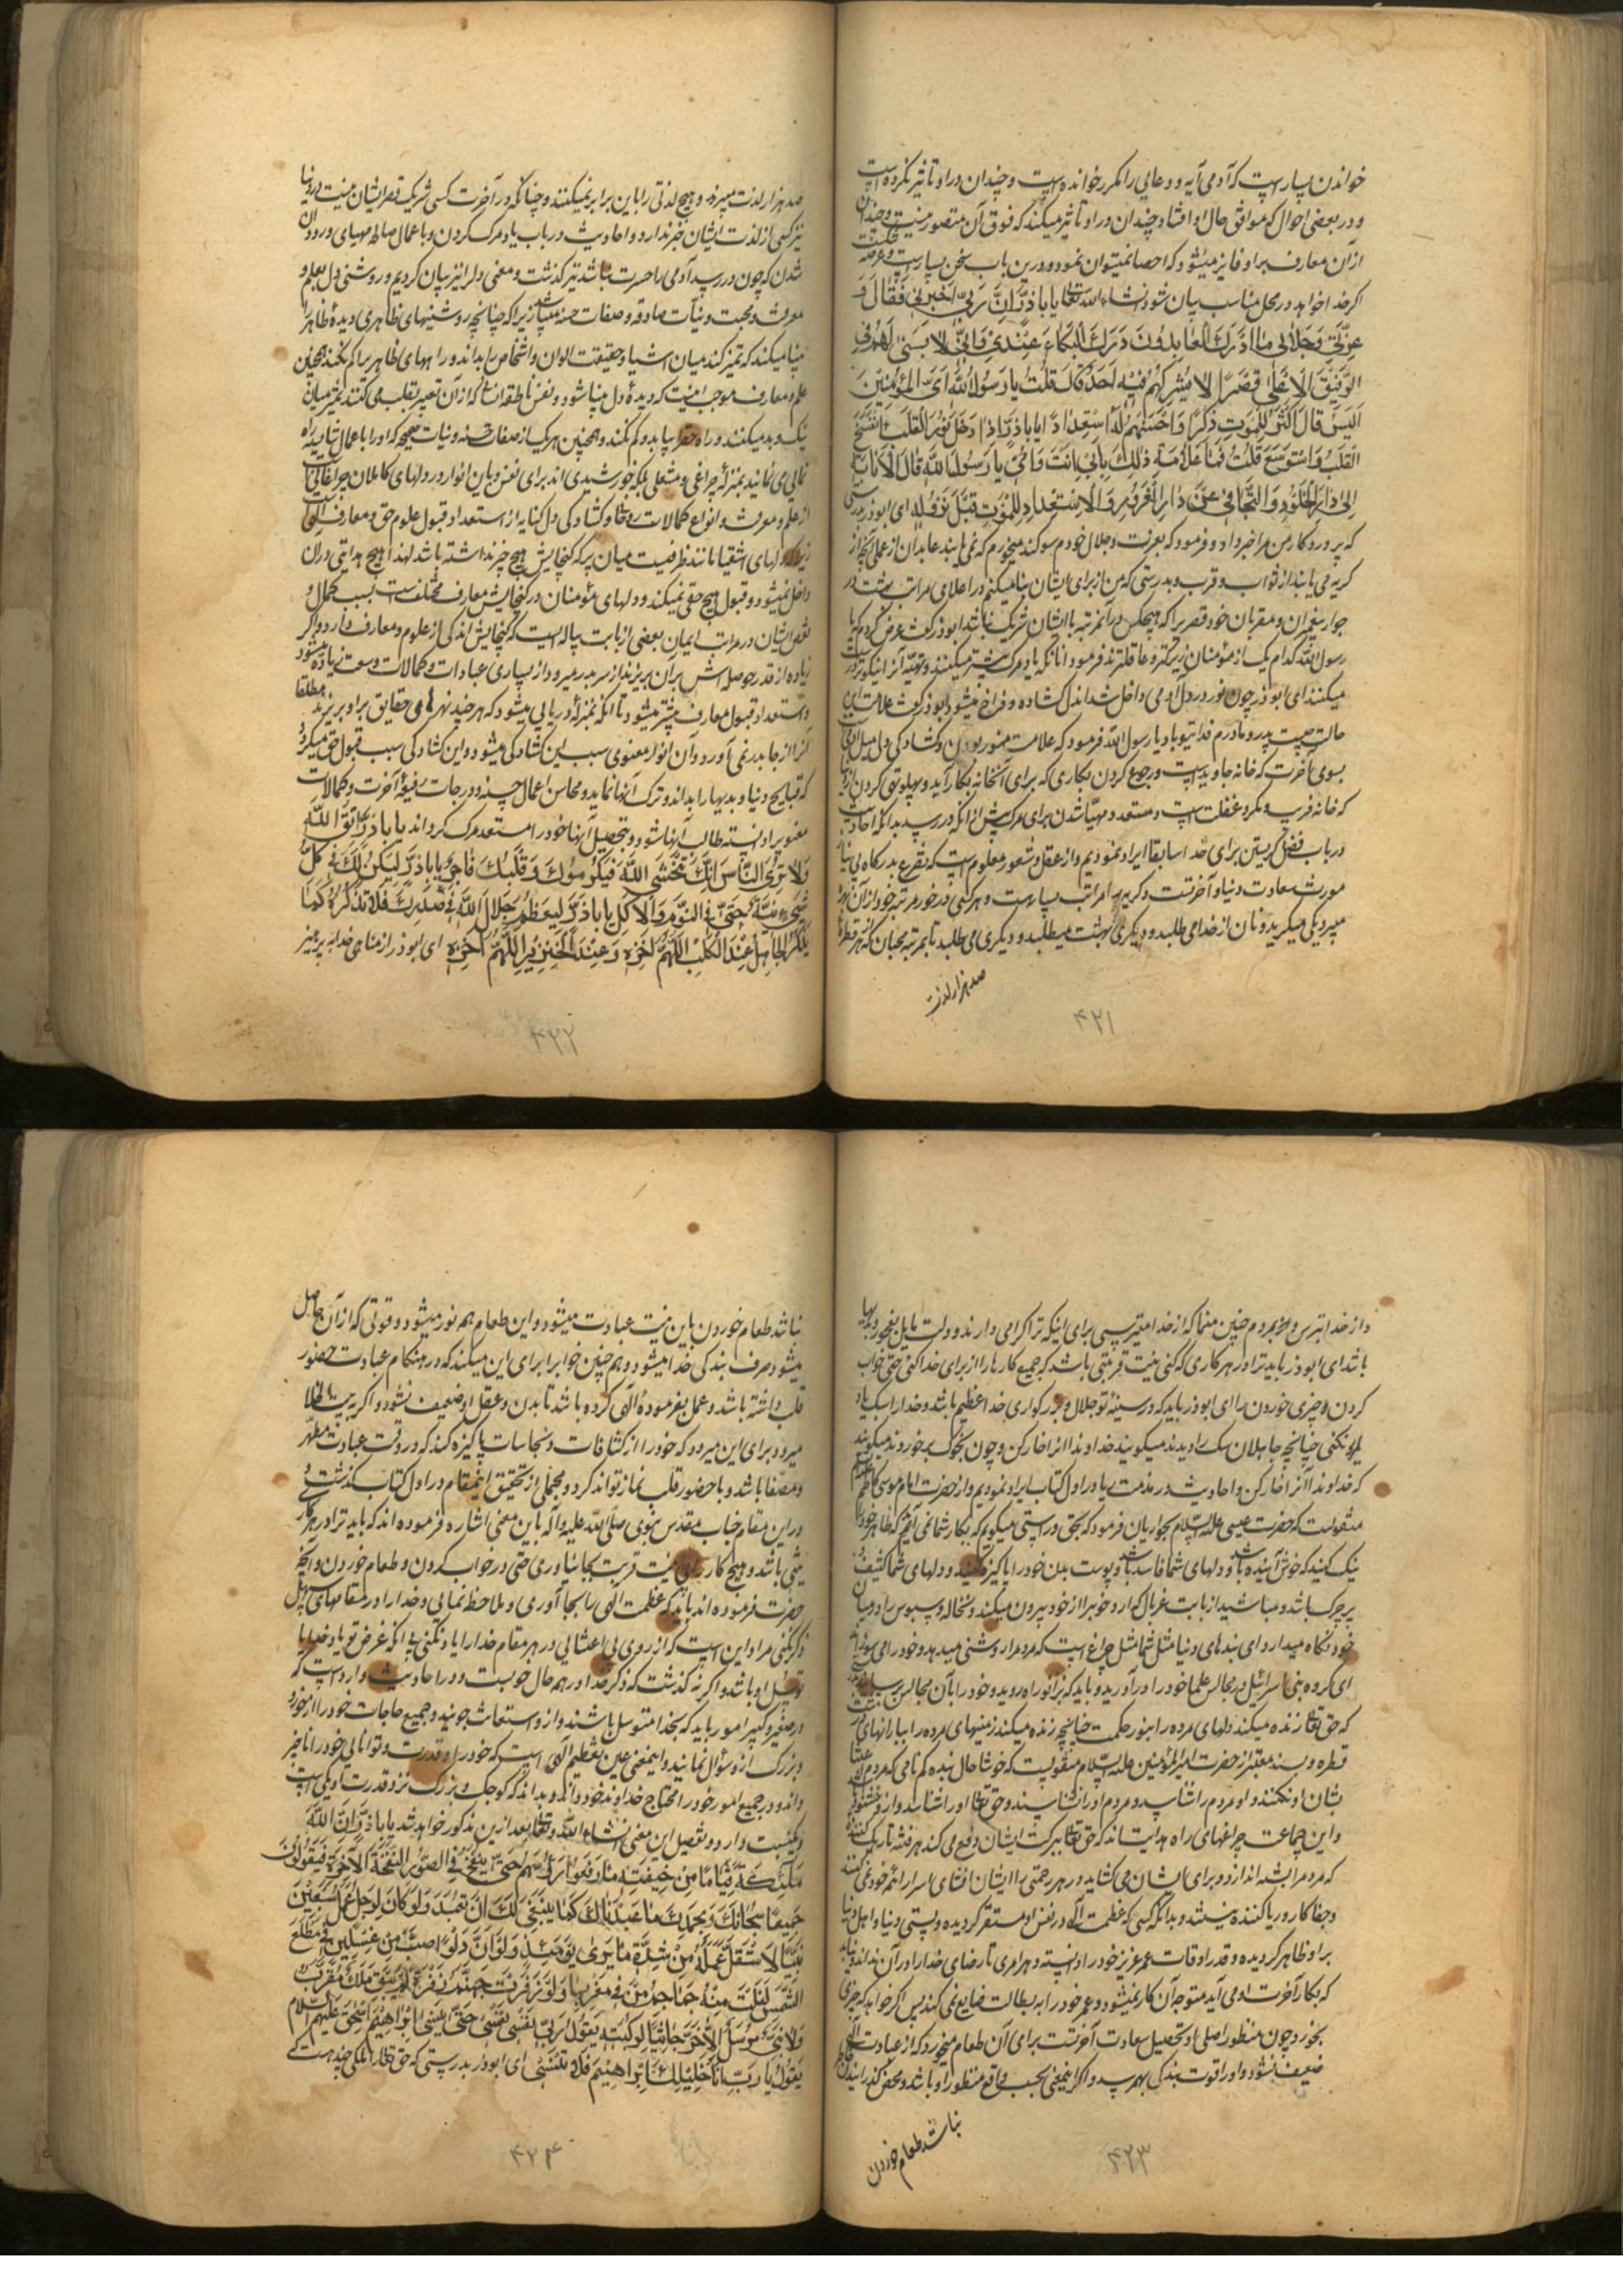 خواندن بسیار است که آدمی آیه و دعایی را مکرر خوانده است و چندان در او تاثیر نکرده است
و در بعضی احوال که موافق حال او افتاد چندان در او تاثیر میکند که فوق آن متصور نیست و چندان
از آن معارف بر او فایز میشود که احصا نمیتوان نمود و درین باب سخن بسیار است و عرصه
اگر خدا خواهد در محل مناسب بیان شود انشاء الله تعالی یا باذر ان ربی اخبرنی فقال و
عزتی و جلالی ما ادرک العابدون درک البکاء عندی و انی لابنی لهم فی
الرفیق الاعلی قصرا لا یشرکهم فیه احد قال قلت یا رسول الله ای المؤمنین
اکیس قال اکثرهم للموت ذکرا و احسنهم له استعدادا یا باذر اذا دخل النور القلب انفسح
القلب و استوسع قلت فما علامة ذلک بابی انت و امی یا رسول الله قال الانابة
الی دار الخلود و التجافی عن دار الغرور و الاستعداد للموت قبل نزوله ای ابوذر بدرستی
که پروردگار من مرا خبر داد و فرمود که بعزت و جلال خودم سوگند میخورم که نمی یابند عابدان از عملی آنچه از
گریه می یابند از ثواب و قرب و بدرستی که من از برای ایشان بنا میکنم در اعلای مراتب بهشت در
جوار پیغمبران و مقربان خود قصری را که هیچکس در آنمرتبه با ایشان شریک نباشد ابوذر گفت عرض کردم که یا
رسول الله کدام یک از مؤمنان زیرکتر و عاقلترند فرمود آنانکه یاد مرگ بیشتر میکنند و تهیه آنرا نیکوتر درست
میکنند ای ابوذر چون نور در دل آدمی داخل شد اندل گشاده و فراخ میشود ابوذر گفت علامت این
حالت چیست پدر و مادرم فدای تو باد یا رسول الله فرمود که علامت منور بودن و گشادگی دل میل آدمی است
بسوی آخرت که خانه جاوید است و رجوع کردن بکاری که برای آنخانه بکار آید و پهلو تهی کردن از دنیا
که خانه فریب و مکر و غفلت است و مستعد و مهیا شدن برای مرگ پیش از آنکه در رسد بدانکه احادیث
در باب فضل گریستن برای خدا سابقا ایراد نمودیم و از عقل و شعور معلوم است که تضرع بدرگاه بی نیاز
مورث سعادت دنیا و آخرتست و گریه را مراتب بسیار است و هر کسی در خور مرتبه خود از آن بهره
میبرد یکی میگرید و نان از خدا می طلبد و دیگری بهشت میطلبد و دیگری می طلبد تا بمرتبه محبان که از هر قطره
صد هزار لذت
۴۲۱
صد هزار لذت میبرند و هیچ لذتی را باین برابر نمیکنند و چنانکه در آخرت کسی شریک قصر ایشان نیست در دنیا
نیز کسی از لذت ایشان خبر ندارد و احادیث در باب یاد مرگ کردن و با عمال صالحه مهیای ورود آن
شدن که چون در رسد آدمی را حسرت نباشد نیز گذشت و معنی دلرا نیز بیان کردیم و روشنی دل بعلم و
معرفت و محبت و نیات صادقه و صفات حسنه میباشد زیرا که چنانچه روشنیهای ظاهری دیده ظاهر را
بینا میکند که تمیز کند میان اشیا و حقیقت الوان و اشخاص را بداند و راههای ظاهر را گم نکند همچنین
علم و معارف موجب اینست که دیده دل بینا شود و نفس ناطقه انسانی که از آن تعبیر بقلب می کنند تمیز میان
نیک و بد میکند و راه حق را بیابد و گم نکند و همچنین هر یک از صفات حسنه و نیات صحیحه که او را با عمال شایسته راه
نمایی می نمایند بمنزله چراغی و مشعلی بلکه خورشیدی اند برای نفس و باین انوار در دلهای کاملان چراغانی است
از علم و معرفت و انواع کمالات روحانی و گشادگی دل کنایه از استعداد قبول علوم حق و معارف الهی است
زیرا که دلهای اشقیا مانند ظرفیست میان پر که گنجایش هیچ چیز نداشته باشد لهذا هیچ هدایتی در آن
داخل نمیشود و قبول هیچ حقی نمیکند و دلهای مؤمنان در گنجایش معارف مختلف است بسبب کمال و
نقص ایشان در مراتب ایمان بعضی از بابت پیاله ایست که گنجایش اندکی از علوم و معارف دارد و اگر
زیاده از قدر حوصله اش بر آن بریزند از سر بدر میرود و از بسیاری عبادات و کمالات وسعت زیاده میشود
و استعداد قبول معارف بیشتر میشود تا آنکه بمنزله دریایی میشود که هر چند نهرهای حقایق بر او بریزند مطلقا
آنرا از جا بدر نمی آورد و آن انوار معنوی سبب این گشادگی میشود و این گشادگی سبب قبول حق میگردد
که قبایح دنیا و بدیها را بداند و ترک آنها نماید و محاسن اعمال حسنه و درجات رفیعه آخرت و کمالات
معنوی را دانسته طالب آنها شود و بتحصیل آنها خود را مستعد مرگ گرداند یا باذر اتق الله
و لا تری الناس انک تخشی الله فیکرموک و قلبک فاجر یا باذر لیکن لک فی کل
شیء نیة حتی فی النوم و الاکل یا باذر لیعظم جلال الله فی صدرک فلا تذکره کما
یذکره الجاهل عند الکلب اللهم اخزه و عند الخنزیر اللهم اخزه ای ابوذر از مناهی خدا بپرهیز
۴۲۲
و از خدا بترس و بمردم چنین منما که از خدا میترسی برای اینکه ترا گرامی دارند و دلت مایل بفجور و بدیها
باشد ای ابوذر باید ترا در هر کاری که کنی نیت قربتی باشد که جمیع کارها را از برای خدا کنی حتی خواب
کردن و چیزی خوردن را ای ابوذر باید که در سینه تو جلال و بزرگواری خدا عظیم باشد و خدا را سبک یاد
نکنی چنانچه جاهلان سگ را دیدند میگویند خداوندا اینرا خار کن و چون بخوک بر خوردند میگویند
که خداوندا آنرا خار کن و احادیث در مذمت ریا در اول کتاب ایراد نمودیم و از حضرت امام موسی کاظم
منقولست که حضرت عیسی علیه السلام بحواریان فرمود که بحق و راستی میگویم که بکار شما نمی آید که ظاهر خود را
نیک کنید که خوش آینده باشد و دلهای شما فاسد باشد و پوست بدن خود را پاکیزه کنید و دلهای شما کثیف و
پر چرک باشد و مباشید از بابت غربال که آرد خوب را از خود بیرون میکند و نخاله و سبوس را در میان
خود نگاه میدارد ای بندهای دنیا مثل شما مثل چراغ است که مردم را روشنی میدهد و خود را می سوزاند
ای گروه بنی اسرائیل در مجالس علما خود را در آورید و باید که بزانو راه روید و خود را بآن مجالس برسانید
که حق تعالی زنده میکند دلهای مرده را بنور حکمت چنانچه زنده میکند زمینهای مرده را ببارانهای
قطره و بسند معتبر از حضرت امیر المؤمنین علیه السلام منقولست که خوشا حال بنده گم نامی که مردم اعتنا
بشان او نکنند و او مردم را شناسد و مردم او را نشناسند و حق تعالی او را شناسد و از او خشنود
و این جماعت چراغهای راه هدایت اند که حق تعالی ببرکت ایشان دفع می کند هر فتنه تاریک کننده
که مردم را بشبه اندازد و برای ایشان می گشاید در هر رحمتی را ایشان افشای اسرار ائمه خود نمی کنند
و جفا کار و ریا کننده نیستند و بدانکه کسی که عظمت الهی در نفس او مستقر گردیده و پستی دنیا و اهل دنیا
بر او ظاهر گردیده و قدر اوقات عمر عزیز خود را دانسته و هر امری تا رضای خدا را در آن نداند و نیابد
که بکار آخرت او می آید متوجه آن کار نمیشود و عمر خود را به بطالت ضایع نمی کند پس اگر خواهد که چیزی
بخورد چون منظور اصلی او تحصیل سعادت آخرتست برای آن طعام میخورد که از عبادت الهی
ضعیف نشود و او را قوت بندگی بهمرسد و اگر اینمعنی بحسب واقع منظور او باشد و محض گذرانیدن
نباشد طعام خوردن
۴۲۳
نباشد طعام خوردن باین نیت عبادت میشود و این طعام هم نور میشود و قوتی که از آن حاصل
میشود صرف بندگی خدا میشود و همچنین خواب را برای این میکند که در هنگام عبادت حضور
قلب داشته باشد و عمل بفرموده الهی کرده باشد تا بدن و عقل او ضعیف نشود و اگر به بیت الخلا
میرود برای این میرود که خود را از کثافات و نجاسات پاکیزه کند که در وقت عبادت مطهر
و مصفا باشد و با حضور قلب نماز تواند کرد و مجملی از تحقیق اینمقام در اول کتاب گذشت و
در این مقام جناب مقدس نبوی صلی الله علیه و آله باین معنی اشاره فرموده اند که باید ترا در هر کار
نیتی باشد و هیچ کار را بی نیت قربت بجا نیاوری حتی در خواب کردن و طعام خوردن و آنچه
حضرت فرموده اند باید که عظمت الهی را بجا آوری و ملاحظه نمایی و خدا را در مقامهای سهل
ذکر نکنی مراد این است که از روی بی اعتنایی در هر مقام خدا را یاد نکنی بی آنکه غرض تو یاد خدا یا
توسل او باشد و اگر نه گذشت که ذکر خدا در همه حال خوبست و در احادیث وارد است که
در صغیر و کبیر امور باید که بخدا متوسل باشند و از او استعانت جویند و جمیع حاجات خود را از خورد
و بزرگ از او سؤال نمایند و اینمعنی عین تعظیم الهی است که خود را و قدرت و توانایی خود را ناچیز
داند و در جمیع امور خود را محتاج خداوند خود داند و بداند که کوچک و بزرگ نزد قدرت او یکی است
و یک نسبت دارد و تفصیل این معنی انشاء الله تعالی بعد ازین مذکور خواهد شد یا باذر ان الله
ملائکة قیاما من خیفته ما رفعوا رؤسهم حتی ینفخ فی الصور النفخة الآخرة فیقولون
جمیعا سبحانک و بحمدک ما عبدناک کما ینبغی لک ان تعبد و لو کان لرجل عمل سبعین
نبیا لاستقل عمله من شدة ما یری یومئذ و لو ان دلوا صب من غسلین فی مطلع
الشمس لغلت منه جماجم من فی مغربها و لو زفرت جهنم زفرة لم یبق ملک مقرب
و لا نبی مرسل الا خر جاثیا لرکبتیه یقول رب نفسی نفسی حتی ینسی ابراهیم اسحق علیهم السلام
یقول یا رب انا خلیلک ابراهیم فلا تنسنی ای ابوذر بدرستی که حق تعالی را ملکی چند هست که
۴۲۴